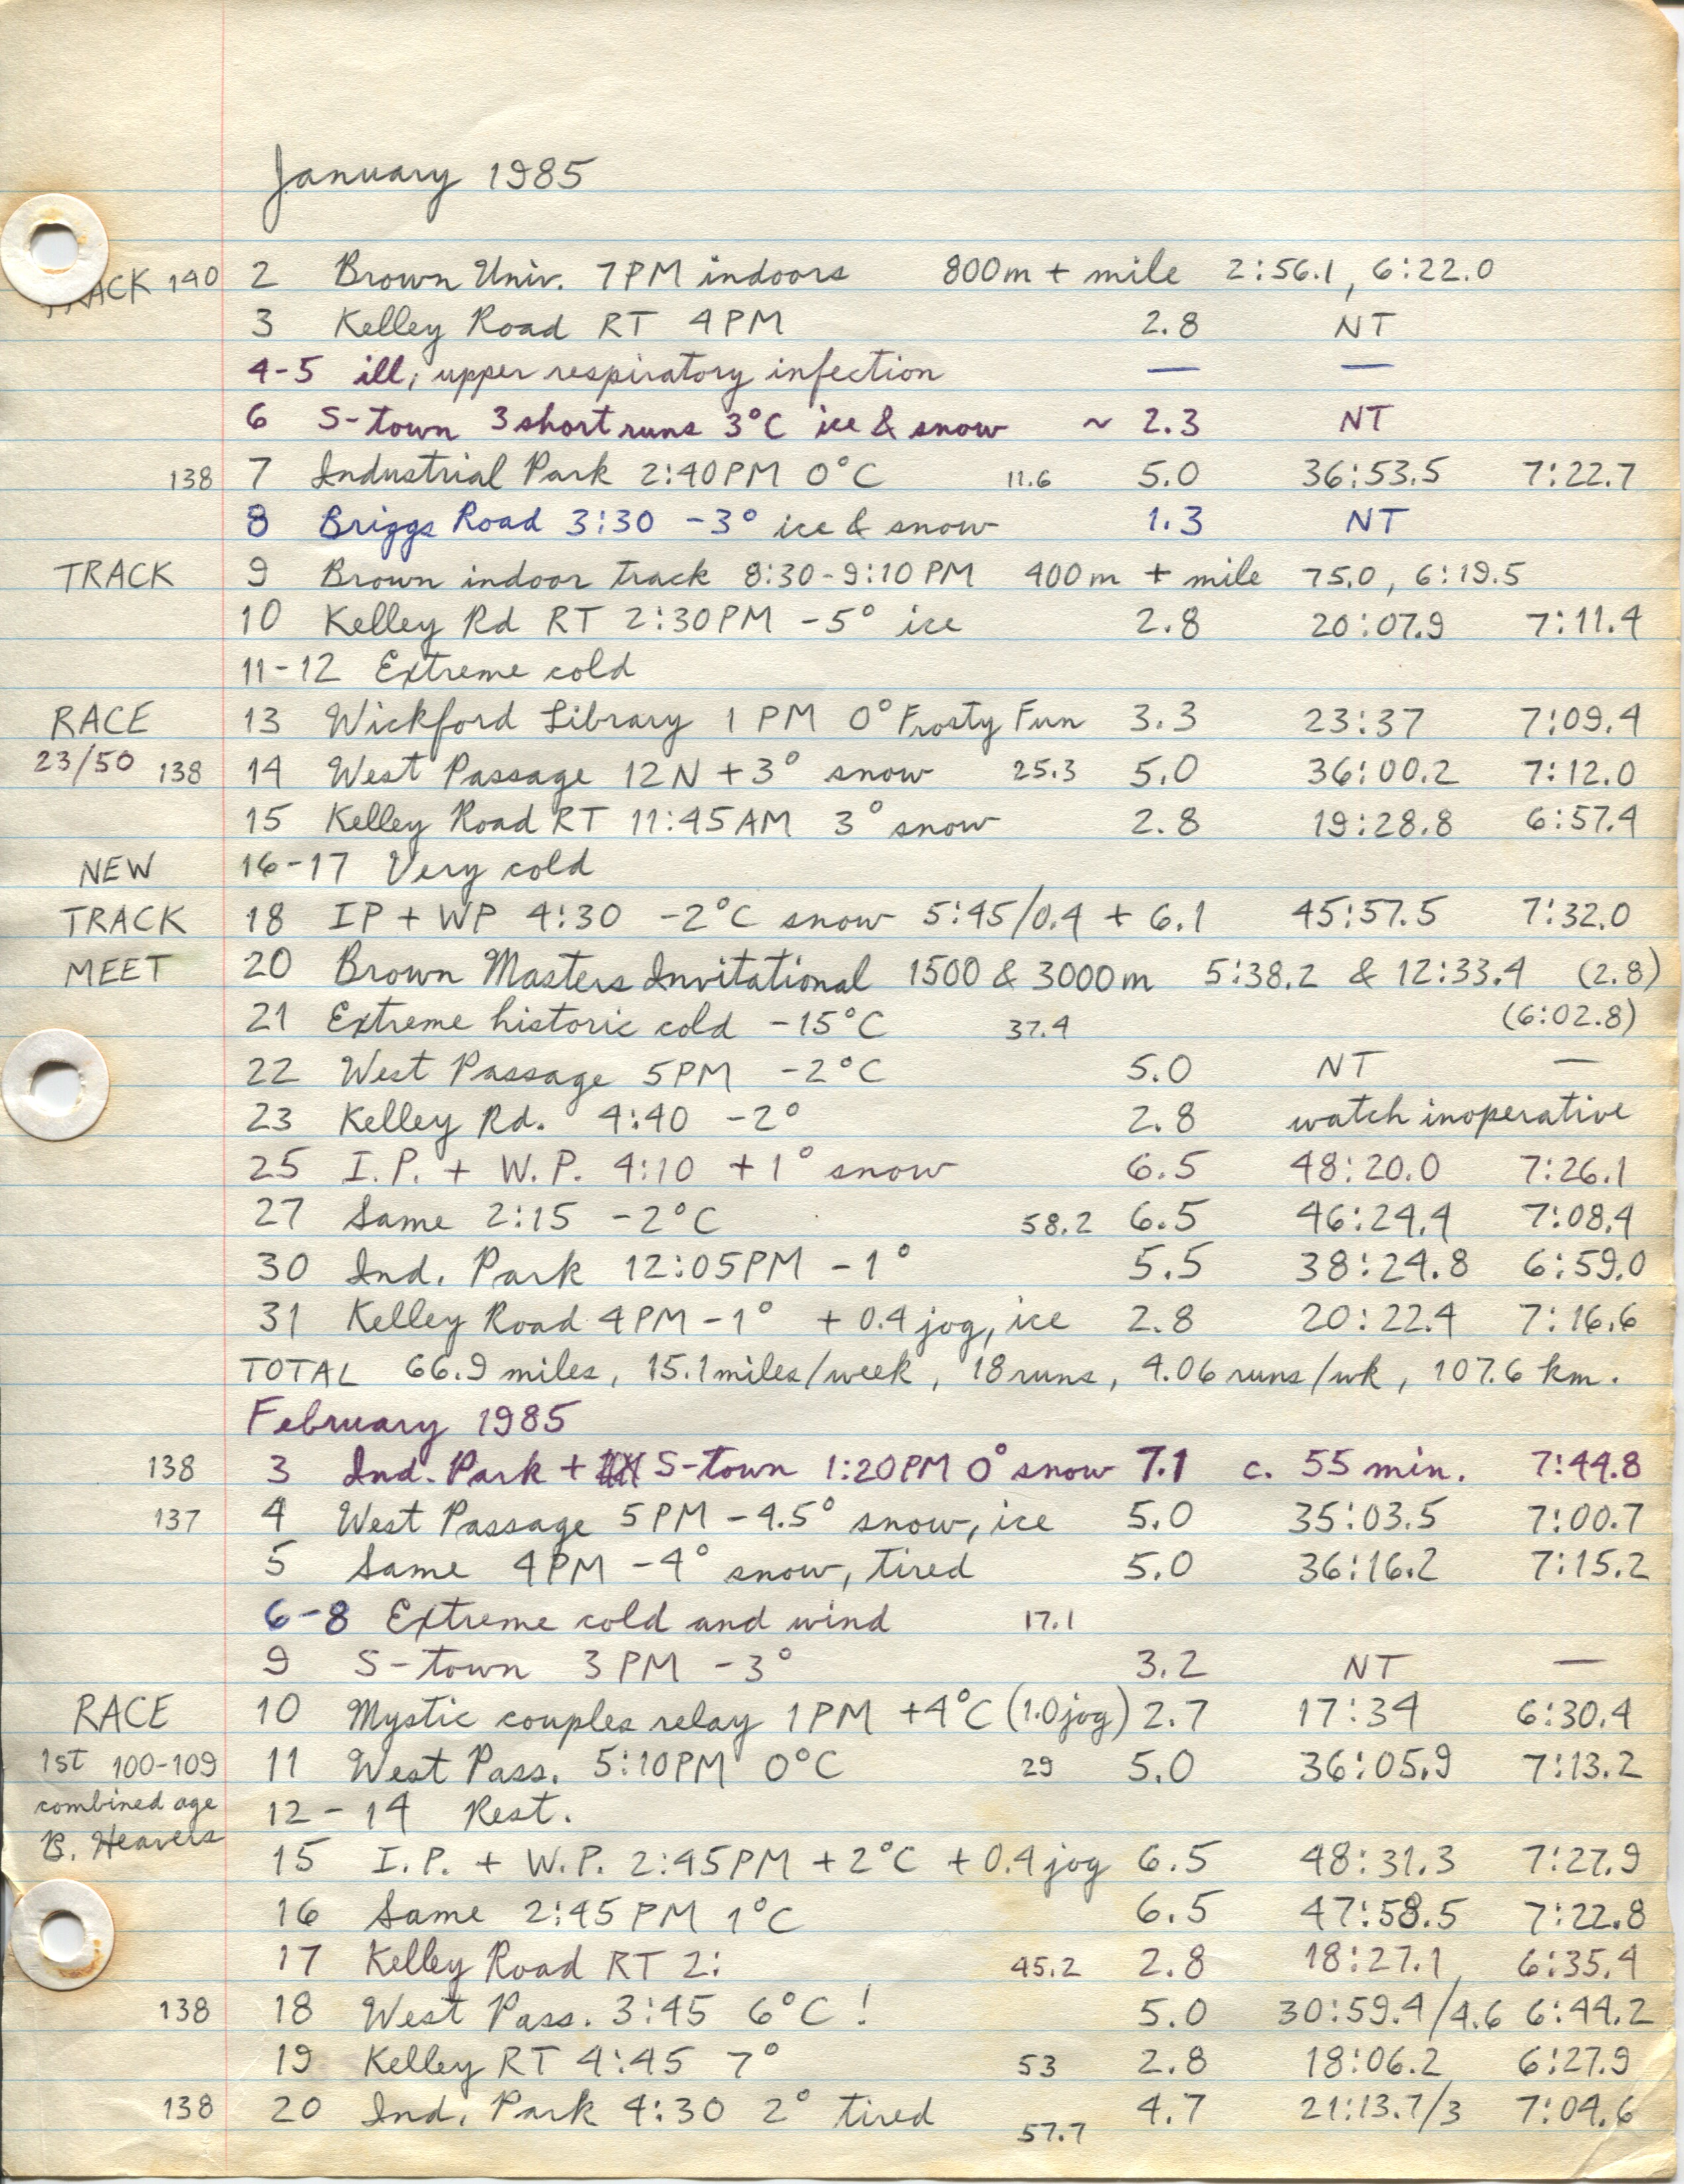 January 1985
TRACK 140 2 Brown Univ. 7PM indoors 800m + mile 2:56.1, 6:22.0
3 Kelley Road RT 4PM 2.8 NT
4-5 ill, upper respiratory infection — —
6 S-town 3 short runs 3°C ice & snow ~ 2.3 NT
138 7 Industrial Park 2:40PM 0°C 11.6 5.0 36:53.5 7:22.7
8 Briggs Road 3:30 -3° ice & snow 1.3 NT
TRACK 9 Brown indoor track 8:30-9:10PM 400m + mile 75.0, 6:19.5
10 Kelley Rd RT 2:30PM -5° ice 2.8 20:07.9 7:11.4
11-12 Extreme cold
RACE 13 Wickford Library 1 PM 0° Frosty Fun 3.3 23:37 7:09.4
23/50 138 14 West Passage 12N +3° snow 25.3 5.0 36:00.2 7:12.0
15 Kelley Road RT 11:45AM 3° snow 2.8 19:28.8 6:57.4
NEW 16-17 Very cold
TRACK 18 IP + WP 4:30 -2°C snow 5:45/0.4 + 6.1 45:57.5 7:32.0
MEET 20 Brown Masters Invitational 1500 & 3000m 5:38.2 & 12:33.4 (2.8)
21 Extreme historic cold -15°C 37.4 (6:02.8)
22 West Passage 5PM -2°C 5.0 NT —
23 Kelley Rd. 4:40 -2° 2.8 watch inoperative
25 I.P. + W.P. 4:10 +1° snow 6.5 48:20.0 7:26.1
27 Same 2:15 -2°C 58.2 6.5 46:24.4 7:08.4
30 Ind. Park 12:05PM -1° 5.5 38:24.8 6:59.0
31 Kelley Road 4PM -1° + 0.4 jog, ice 2.8 20:22.4 7:16.6
TOTAL 66.9 miles, 15.1 miles/week, 18 runs, 4.06 runs/wk, 107.6 km.
February 1985
138 3 Ind. Park + S-town 1:20PM 0° snow 7.1 c. 55 min. 7:44.8
137 4 West Passage 5PM -4.5° snow, ice 5.0 35:03.5 7:00.7
5 Same 4PM -4° snow, tired 5.0 36:16.2 7:15.2
6-8 Extreme cold and wind 17.1
9 S-town 3PM -3° 3.2 NT —
RACE 10 Mystic couples relay 1PM +4°C (1.0 jog) 2.7 17:34 6:30.4
1st 100-109 11 West Pass. 5:10PM 0°C 29 5.0 36:05.9 7:13.2
combined age 12-14 Rest.
B. Heavers 15 I.P. + W.P. 2:45PM +2°C + 0.4 jog 6.5 48:31.3 7:27.9
16 Same 2:45 PM 1°C 6.5 47:58.5 7:22.8
17 Kelley Road RT 2: 45.2 2.8 18:27.1 6:35.4
138 18 West Pass. 3:45 6°C! 5.0 30:59.4/4.6 6:44.2
19 Kelley RT 4:45 7° 53 2.8 18:06.2 6:27.9
138 20 Ind. Park 4:30 2° tired 57.7 4.7 21:13.7/3 7:04.6